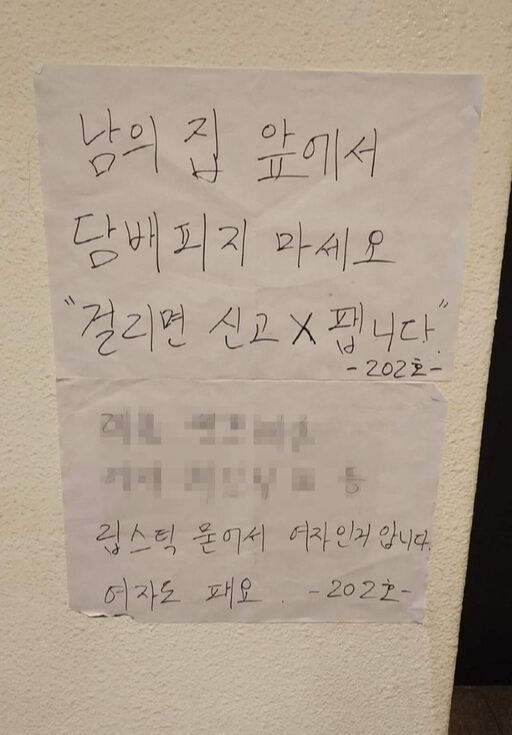 남의 집 앞에서
담배피지 마세요
"걸리면 신고 X 팹니다."
-202호-
등
립스틱 묻어서 여자인거 압니다.
여자도 패요. -202호-